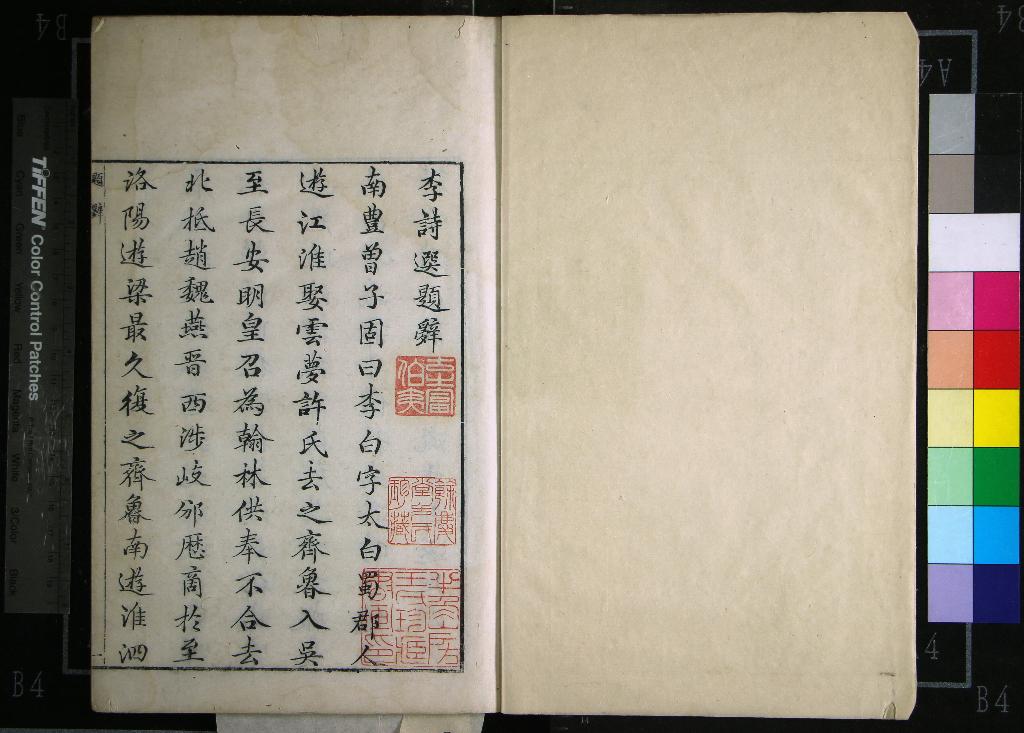 李詩選題辭
南豐曾子固曰李白字太白蜀郡人
遊江淮娶雲夢許氏去之齊魯入吳
至長安明皇召為翰林供奉不合去
北抵趙魏燕晉西涉岐邠歷商於至
洛陽遊梁最久復之齊魯南遊淮泗
題辭
TIFFEN Color Control Patches
Blue Cyan Green Yellow Red Magenta White 3/Color Black
B4
B4
A4
4
B4
B4